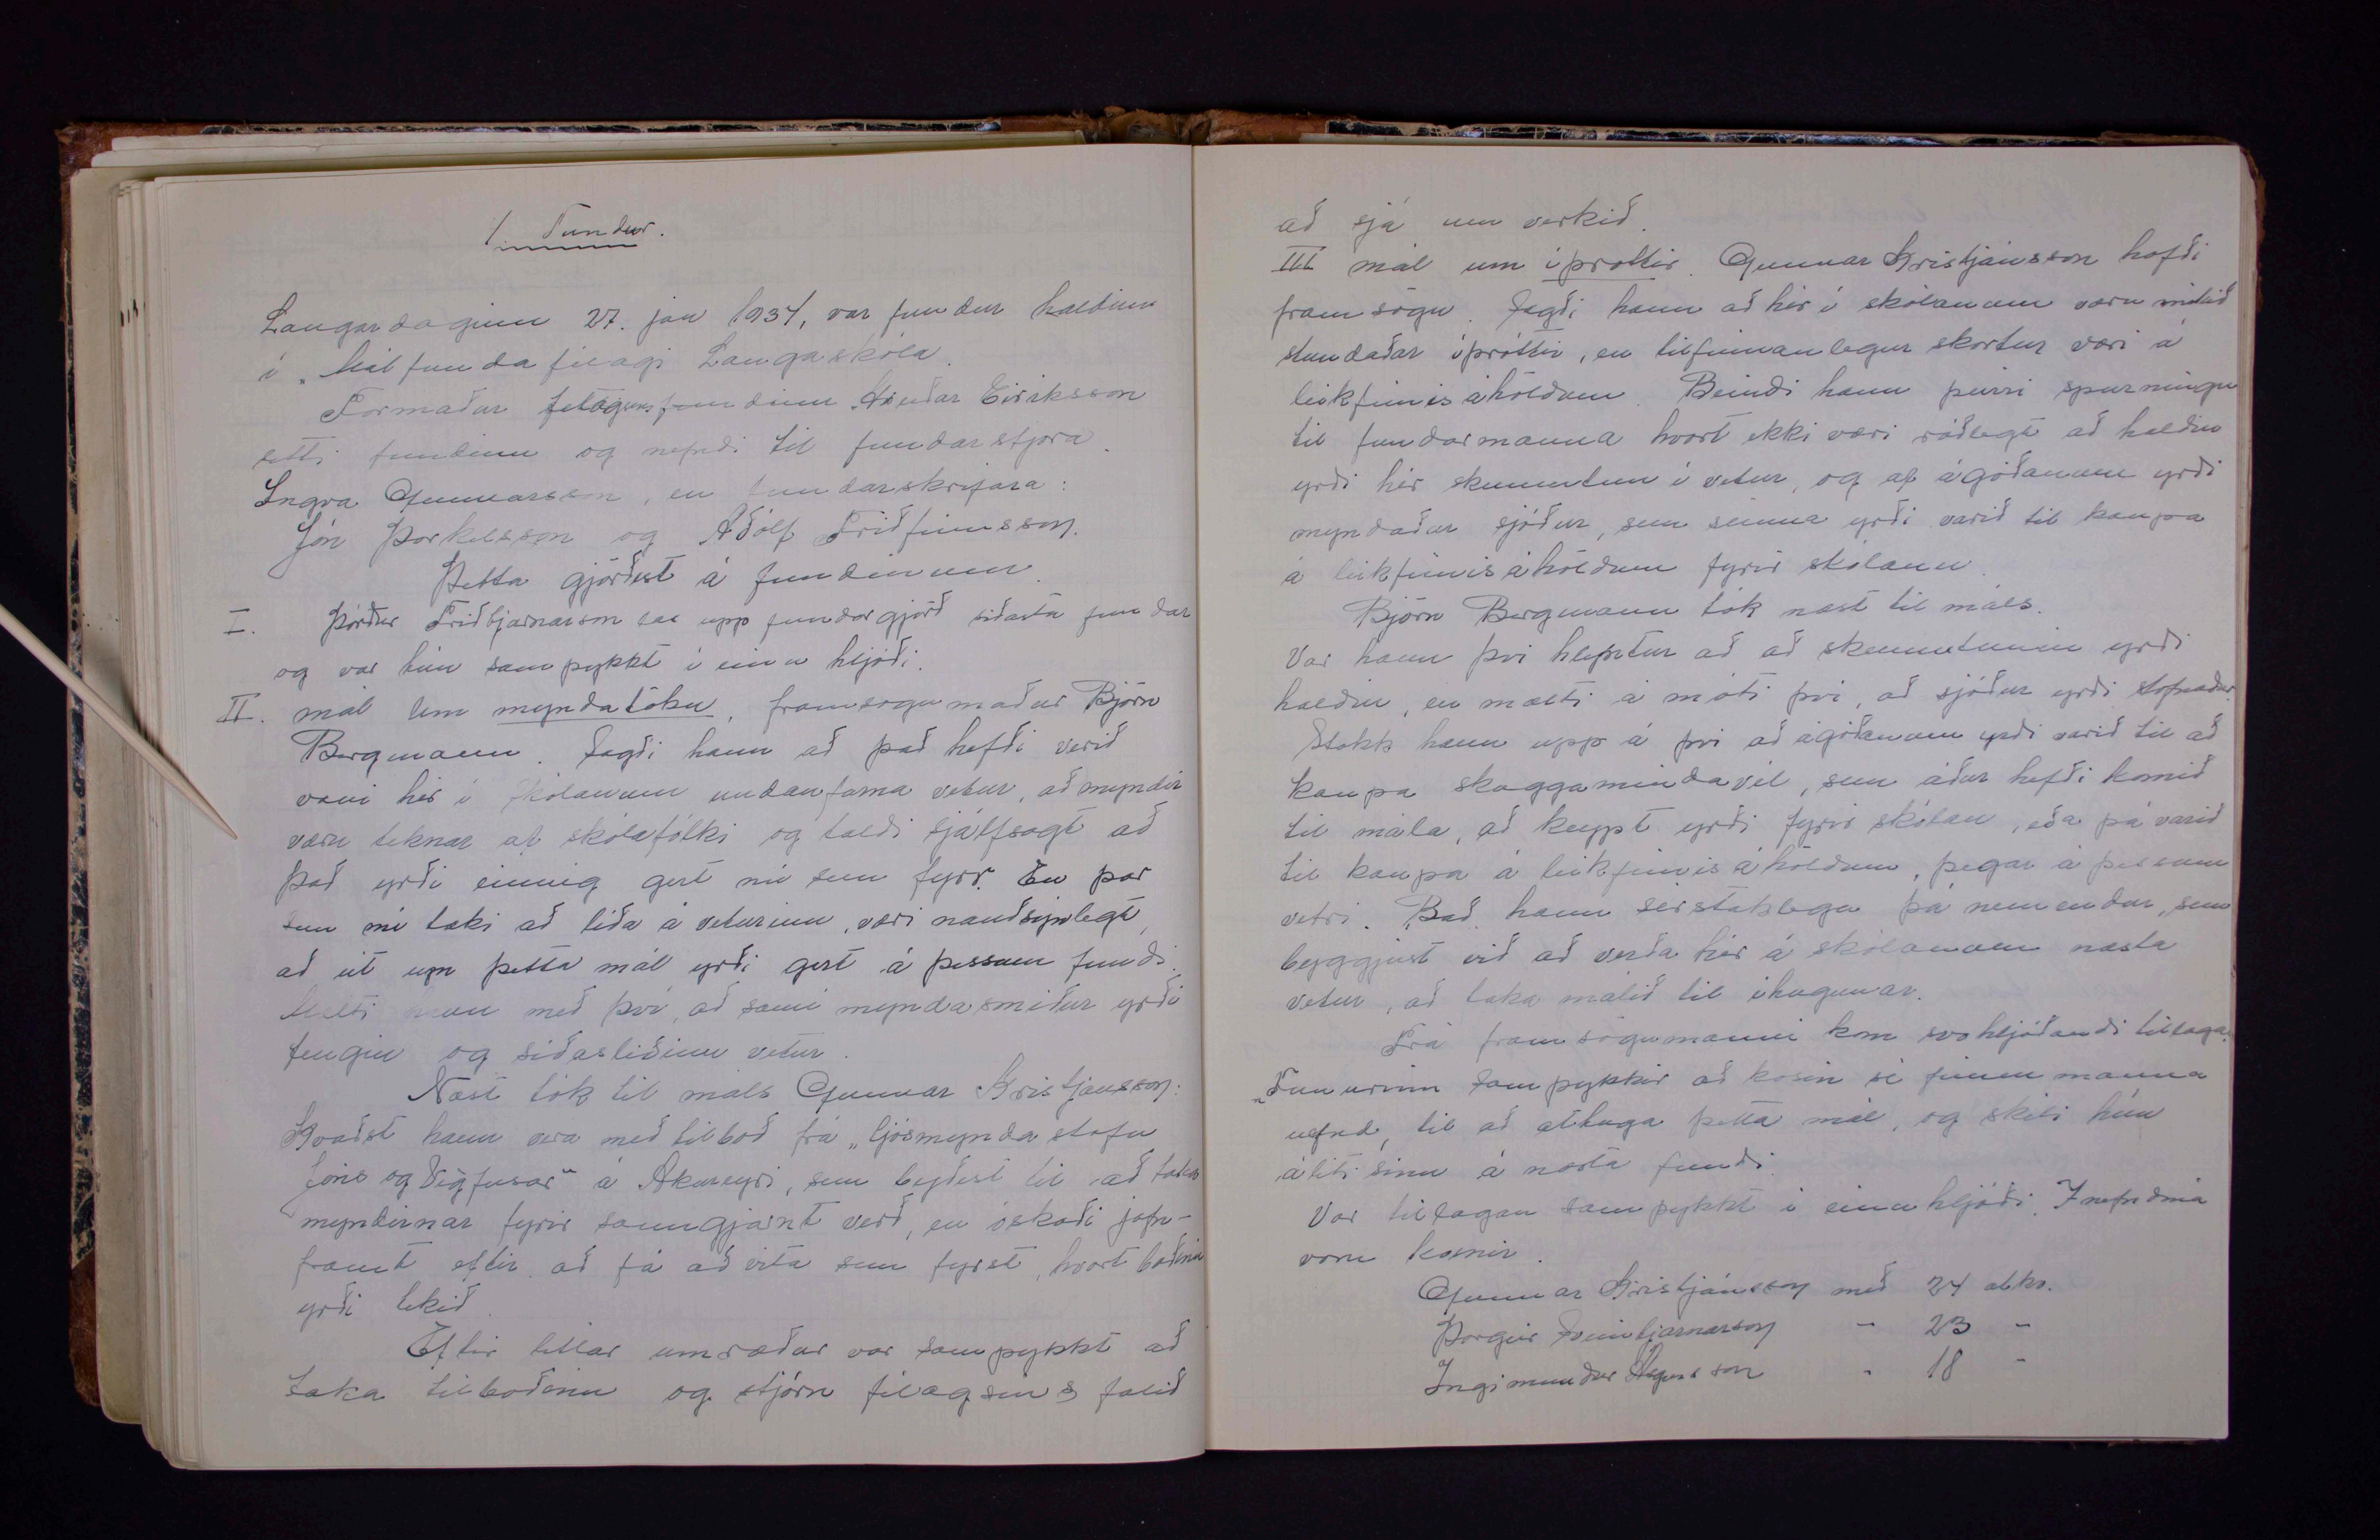 1. Fundur.
Laugardaginn 27. jan 1934, var fundur haldinn
í „Málfundafélagi Laugaskóla
Formaður félagsins Steindar Eiríksson
setti fundinn og nefndi til fundarstjóra
Ingva Gunnarsson, en fundarskrifara:
Jón Þorkelsson og Aðólf Friðfinnsson.
Þetta gjörðist á fundinum.
I. Þórður Friðbjarnarson las upp fundargjörð síðasta fundar
og var hún samþykkt í einu hljóði.
II. mál um myndatöku, framsögumaður Björn
Bergmann. Sagði hann að það hefði verið
vani hér í skólanum undanfarna vetur, að myndir
væru teknar af skólafólki og taldi sjálfsagt að
það yrði einnig gert nú sem fyrr. En þar
sem nú taki að líða á veturinn, væri nauðsynlegt,
að út um þetta mál yrði gert á þessum fundi.
Mælti hann með því, að sami myndasmiður yrði
fengin og síðastliðinn vetur.
Næst tók til máls Gunnar Kristjánsson:
Kvaðst hann vera með tilboð frá „ljósmyndastofu
Jóns og Vigfúsar“ á Akureyri, sem byðist til að taka
myndirnar fyrir sanngjarnt verð, en óskaði jafn-
framt eftir að fá að vita sem fyrst, hvort boðinu
yrði tekið.
Eftir litlar umræður var samþykkt að
taka tilboðinu og stjórn félagsins falið
að sjá um verkið.
III mál um íþróttir. Gunnar Kristjánsson hafði
framsögu. Sagði hann að hér í skólanum væru mikið
stundaðar íþróttir, en tilfinnanlegur skortur væri á
leikfimisáhöldum. Beindi hann þeirri spurningu
til fundarmanna hvort ekki væri ráðlegt að haldin
yrði hér skemmtun í vetur, og af ágóðanum yrði
myndaður sjóður, sem seinna yrði varið til kaupa
á leikfimisáhöldum fyrir skólann.
Björn Bergmann tók næst til máls.
Var hann því hlyntur að að skemmtunin yrði
haldin, en mælti á móti því, að sjóður yrði stofnaður.
Stakk hann upp á því að ágóðanum yrði varið til að
kaupa skuggamindavél, sem áður hefði komið
til mála, að keypt yrði fyrir skólan, eða þá varið
til kaupa á leikfimisáhöldum, þegar á þessum
vetri. Bað hann sérstaklega þá nemendur, sem
byggjust við að verða hér á skólanum næsta
vetur, að taka málið til íhugunar.
Frá framsögumanni kom svohljóðandi tillaga:
„Fundurinn samþykkir að kosin sé fimm manna
nefnd, til að athuga þetta mál, og skili hún
áliti sínu á næsta fundi.
Var tillagan samþykkt í einu hljóði. Í nefndina
voru kosnir.
Gunnar Kristjánsson með 24 atkv.
Þorgeir Sveinbjarnarson - 23 -
Ingimundur - 18 -